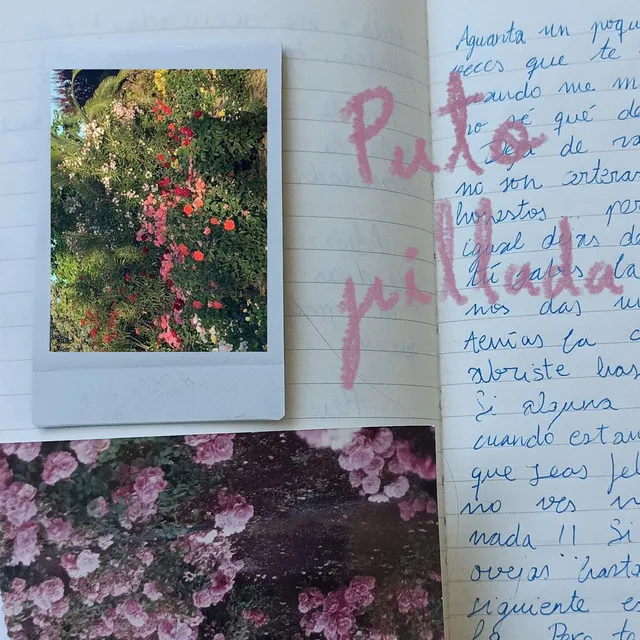 Puto
pillada
Aguanta un poqu
veces que te
uando me m
no sé qué de
de va
no son certeras
honestos per
igual dejas d
tú sabes la
nos das u
tenías la c
abriste has
Si alguna
cuando estau
que seas fel
no ves n
nada !! Si
ovejas hasta
siguiente e
la Pero t